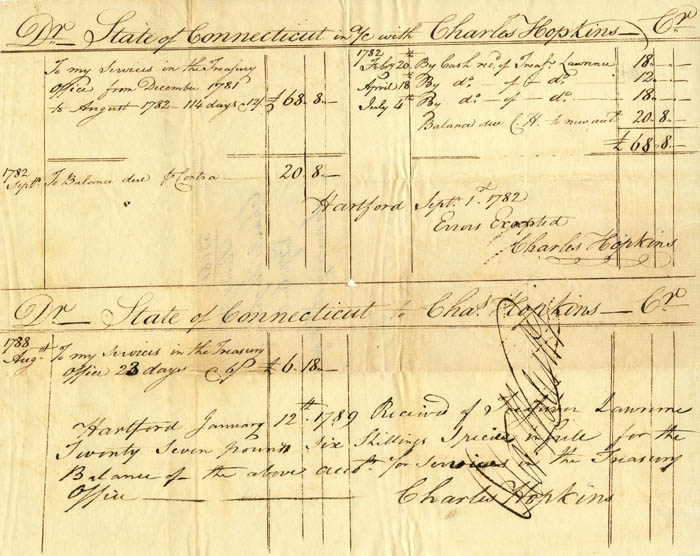 Dr State of Connecticut in a/c with Charles Hopkins Cr
To my Services in the Treasury
Office from December 1781
to August 1782 - 114 days @ 12/ £ 68 8
1782
Feby 20th By Cash recd of Treasr Lawrence 18
April 18th By do of do 12
July 4th By do of do 18
Balance due C.H. to new acct 20 8
£ 68 8
1782
Septr To Balance due Contra 20 8
Hartford Septr 1st 1782
Errors Excepted
Charles Hopkins
Dr State of Connecticut to Chas Hopkins Cr
1788
Augt To my Services in the Treasury
Office 23 days @ 6/ £ 6 18
Hartford January 12th 1789 Received of Treasurer Lawrence
Twenty Seven pounds Six Shillings Specie in full for the
Balance of the above acct for Services in the Treasury
Office
Charles Hopkins